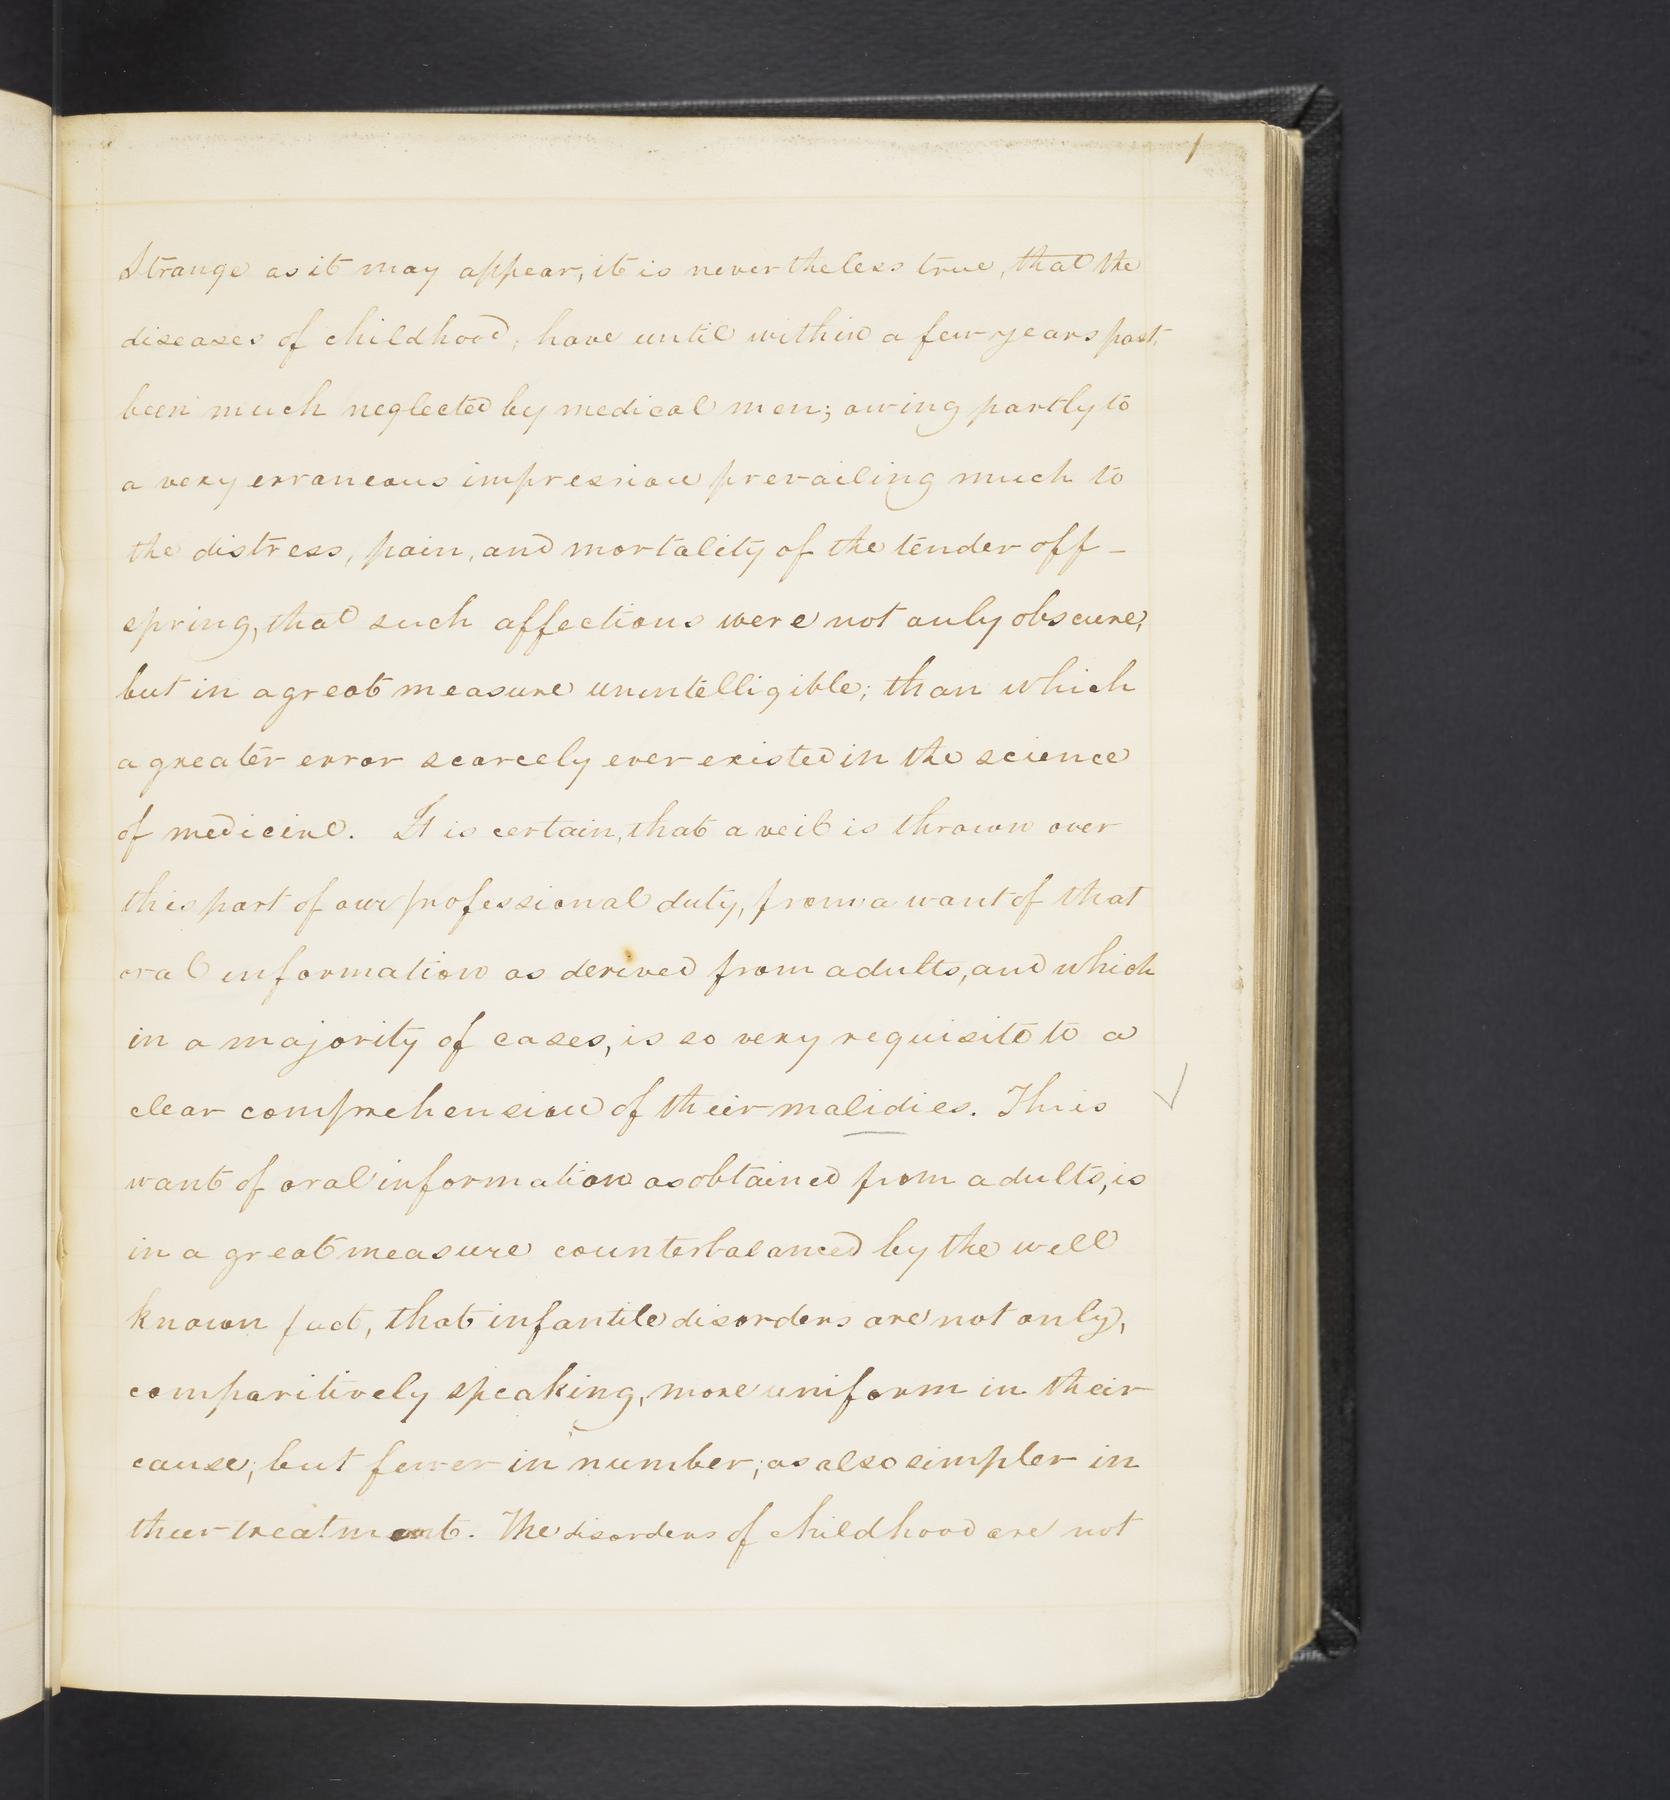 1
Strange as it may appear, it is nevertheless true, that the
diseases of childhood, have until within a few years past,
been much neglected by medical men; owing partly to
a very erraneous impression prevailing much to
the distress, pain, and mortality of the tender off-
spring, that such affections were not only obscure,
but in a great measure unintelligible; than which
a greater error scarcely ever existed in the science
of medicine. It is certain, that a veil is thrown over
this part of our professional duty, from a want of that
oral information as derived from adults, and which
in a majority of cases, is so very requisite to a
clear comprehension of their malidies. This
want of oral information as obtained from adults, is
in a great measure counterbalanced by the well
known fact, that infantile disorders are not only,
comparitively speaking, more uniform in their
cause; but fewer in number; as also simpler in
their treatment. The disorders of childhood are not